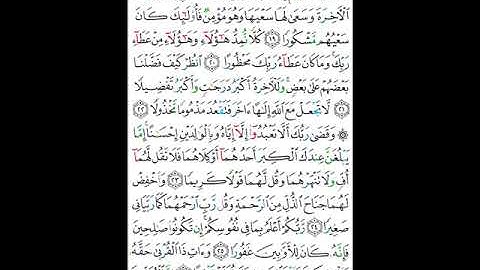 ٱلْأَخِرَةَ وَسَعَىٰ لَهَا سَعْيَهَا وَهُوَ مُؤْمِنٌ فَأُو۟لَٰٓئِكَ كَانَ
سَعْيُهُم مَّشْكُورًا ١٩ كُلًّا نُّمِدُّ هَٰٓؤُلَآءِ وَهَٰٓؤُلَآءِ مِنْ عَطَآءِ
رَبِّكَ ۚ وَمَا كَانَ عَطَآءُ رَبِّكَ مَحْظُورًا ٢٠ ٱنظُرْ كَيْفَ فَضَّلْنَا
بَعْضَهُمْ عَلَىٰ بَعْضٍ ۚ وَلَلْأَخِرَةُ أَكْبَرُ دَرَجَٰتٍ وَأَكْبَرُ تَفْضِيلًا
٢١ لَّا تَجْعَلْ مَعَ ٱللَّهِ إِلَٰهًا ءَاخَرَ فَتَقْعُدَ مَذْمُومًا مَّخْذُولًا ٢٢
۞ وَقَضَىٰ رَبُّكَ أَلَّا تَعْبُدُوٓا۟ إِلَّآ إِيَّاهُ وَبِٱلْوَٰلِدَيْنِ إِحْسَٰنًا ۚ إِمَّا
يَبْلُغَنَّ عِندَكَ ٱلْكِبَرَ أَحَدُهُمَآ أَوْ كِلَاهُمَا فَلَا تَقُل لَّهُمَآ
أُفٍّ وَلَا تَنْهَرْهُمَا وَقُل لَّهُمَا قَوْلًا كَرِيمًا ٢٣ وَٱخْفِضْ
لَهُمَا جَنَاحَ ٱلذُّلِّ مِنَ ٱلرَّحْمَةِ وَقُل رَّبِّ ٱرْحَمْهُمَا كَمَا رَبَّيَانِى
صَغِيرًا ٢٤ رَّبُّكُمْ أَعْلَمُ بِمَا فِى نُفُوسِكُمْ ۚ إِن تَكُونُوا۟ صَٰلِحِينَ
فَإِنَّهُۥ كَانَ لِلْأَوَّٰبِينَ غَفُورًا ٢٥ وَءَاتِ ذَا ٱلْقُرْبَىٰ حَقَّهُۥ